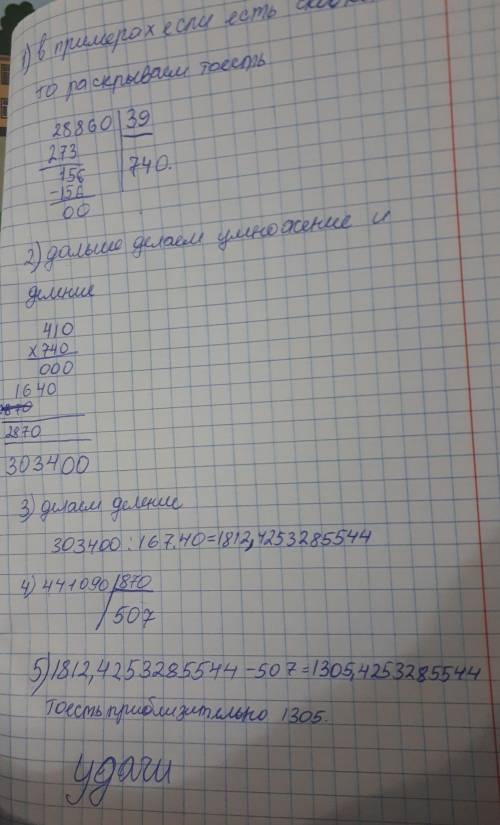 1) в примерах если есть
то раскрываем тоесть
28860 | 39
273
740.
156
-156
00
2) дальше делаем умножение и
деление
410
x740
000
1640
2870
303400
3) делаем деление
303400 : 167.40=1812,4253285544
4) 441090 | 870
507
5) 1812,4253285544 -507=1305,4253285544
тоесть приблизительно 1305.
удачи